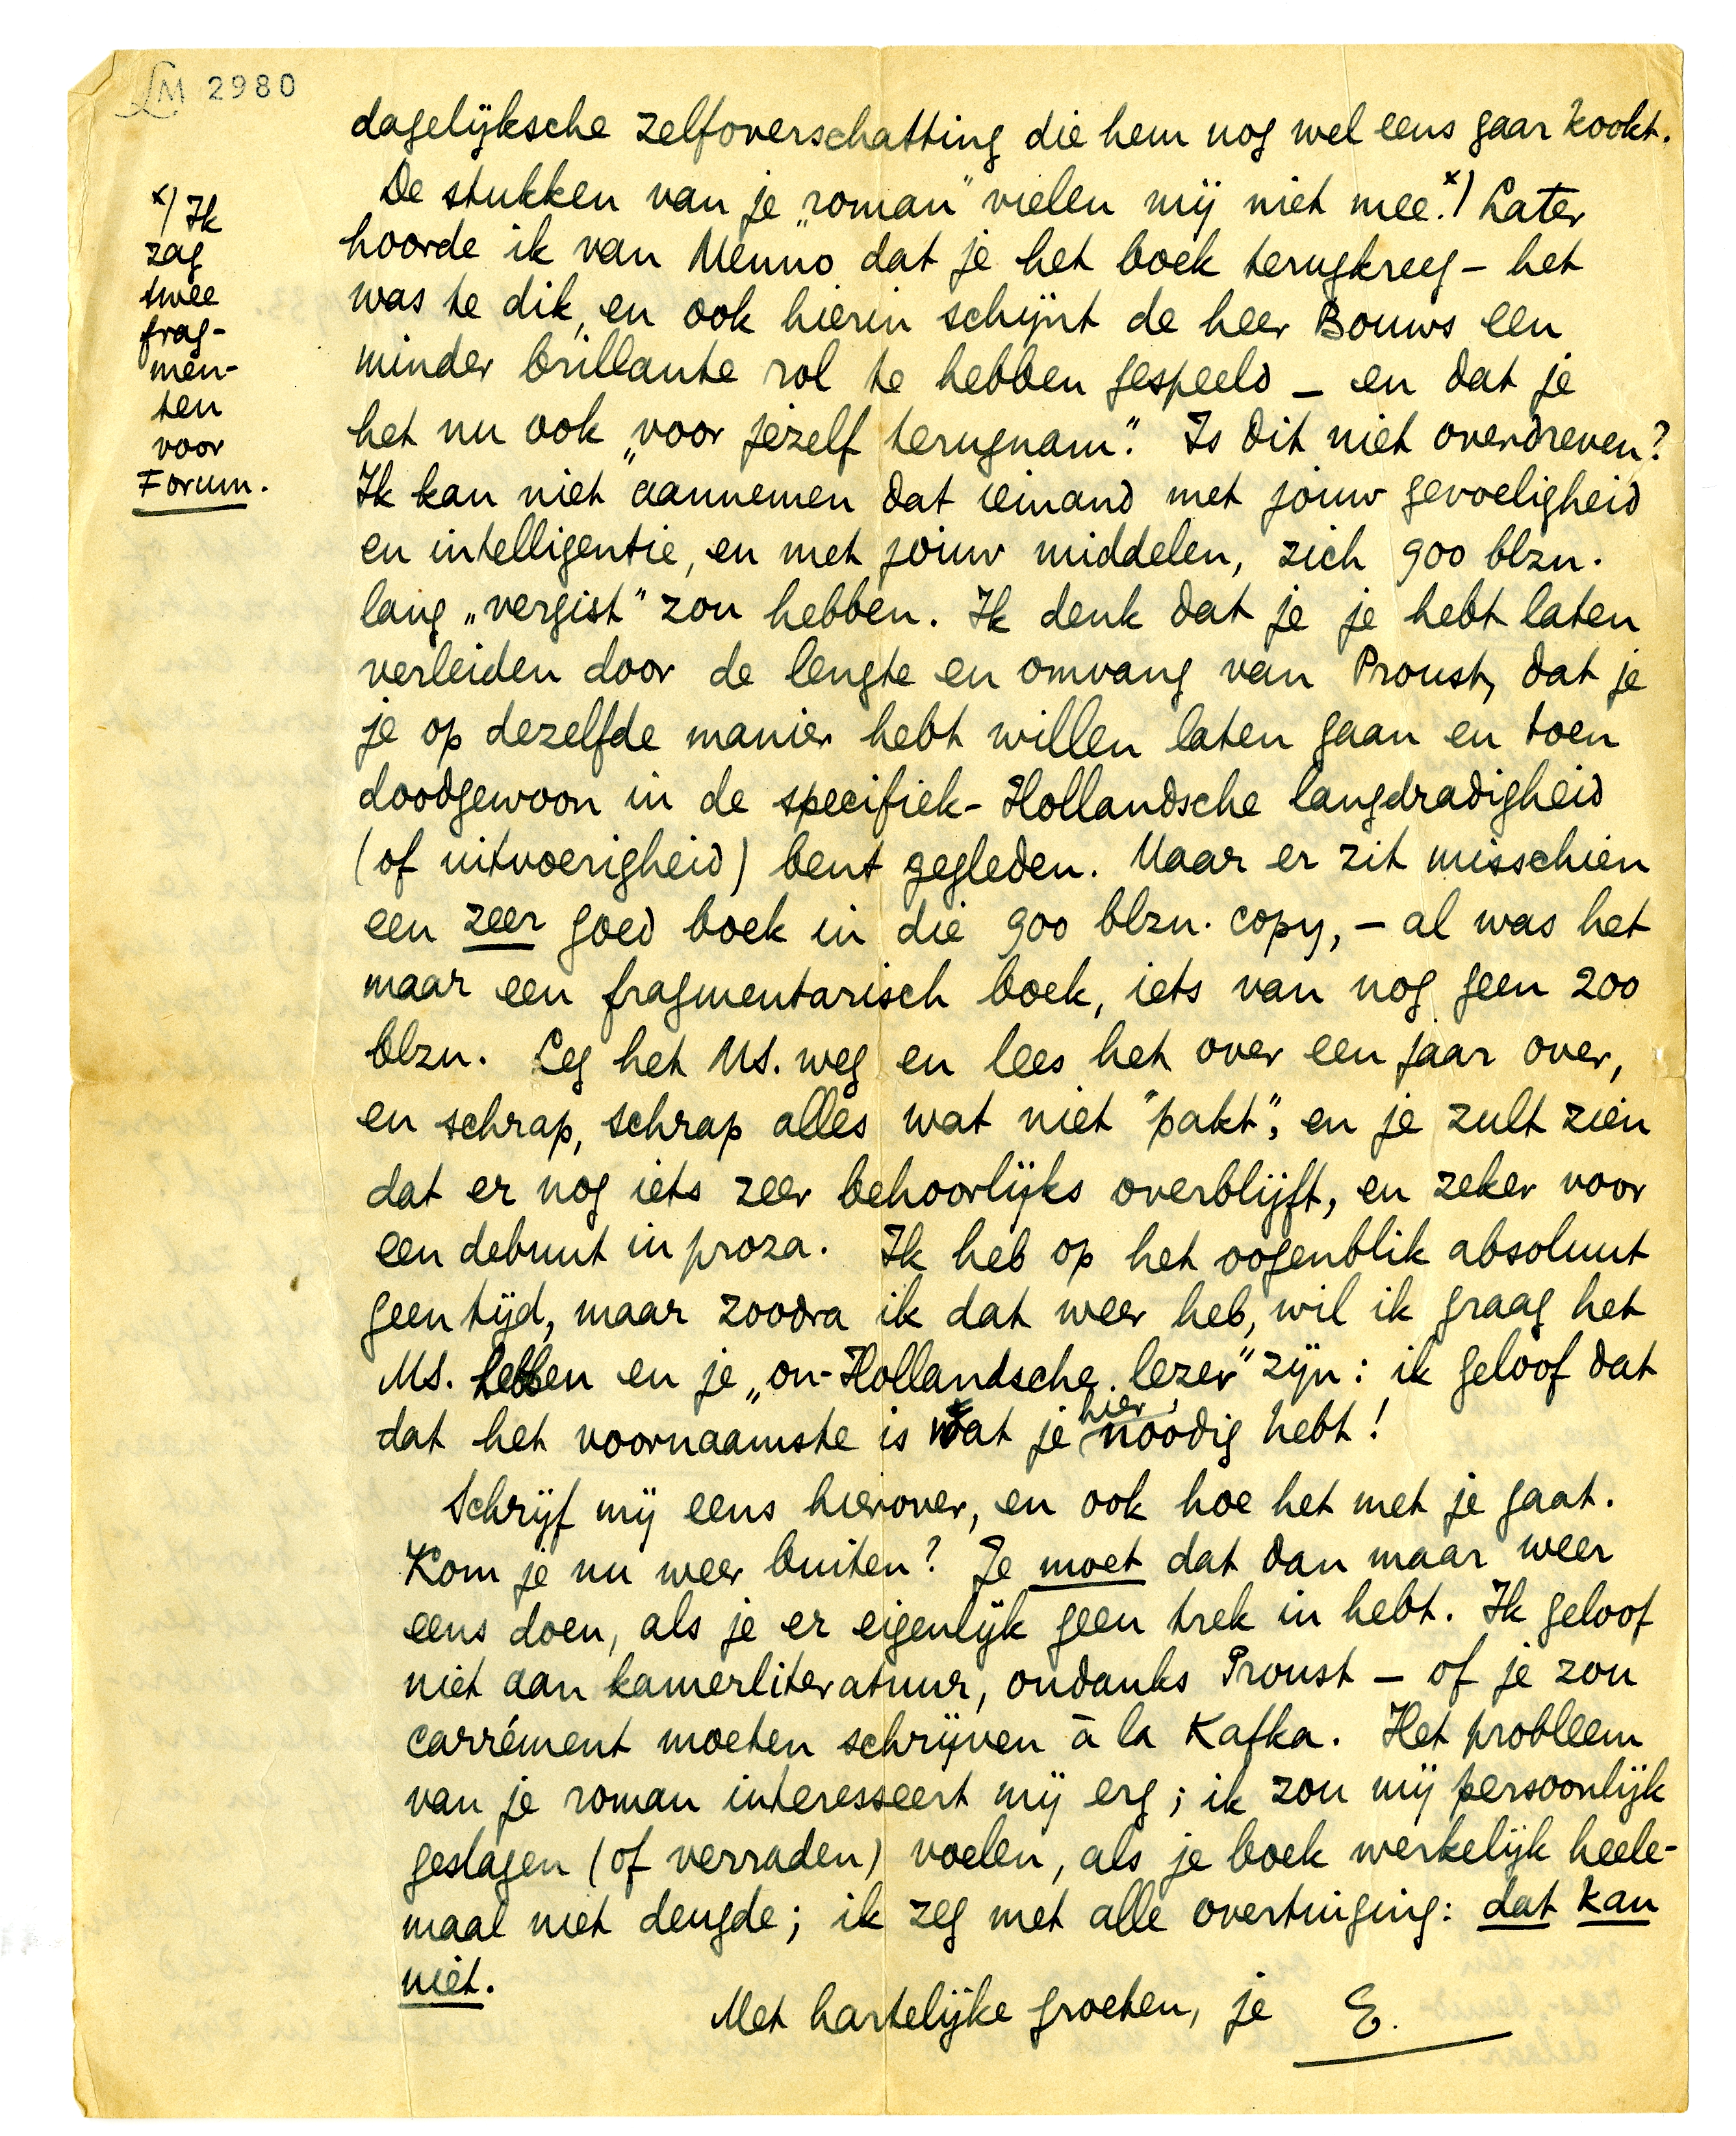 LM 2980
dagelijksche zelfoverschatting die hem nog wel eens gaar kookt.
De stukken van je „roman” vielen mij niet mee.x) Later
hoorde ik van Menno dat je het boek terugkreeg – het
was te dik, en ook hierin schijnt de heer Bouws een
minder brillante rol te hebben gespeeld – en dat je
het nu ook „voor jezelf terugnam”. Is dit niet overdreven?
Ik kan niet aannemen dat iemand met jouw gevoeligheid
en intelligentie, en met jouw middelen, zich 900 blzn.
lang „vergist” zou hebben. Ik denk dat je je hebt laten
verleiden door de lengte en omvang van Proust, dat je
je op dezelfde manier hebt willen laten gaan en toen
doodgewoon in de specifiek-Hollandsche langdradigheid
(of uitvoerigheid) bent gegleden. Maar er zit misschien
een zeer goed boek in die 900 blzn. copy, – al was het
maar een fragmentarisch boek, iets van nog geen 200
blzn. Leg het Ms. weg en lees het over een jaar over,
en schrap, schrap alles wat niet "pakt", en je zult zien
dat er nog iets zeer behoorlijks overblijft, en zeker voor
een debuut in proza. Ik heb op het oogenblik absoluut
geen tijd, maar zoodra ik dat weer heb, wil ik graag het
Ms. hebben en je „on-Hollandsche lezer” zijn: ik geloof dat
dat het voornaamste is wat je hier noodig hebt!
Schrijf mij eens hierover, en ook hoe het met je gaat.
Kom je nu weer buiten? Je moet dat dan maar weer
eens doen, als je er eigenlijk geen trek in hebt. Ik geloof
niet aan kamerliteratuur, ondanks Proust – of je zou
carrément moeten schrijven à la Kafka. Het probleem
van je roman interesseert mij erg; ik zou mij persoonlijk
geslagen (of verraden) voelen, als je boek werkelijk heele-
maal niet deugde; ik zeg met alle overtuiging: dat kan
niet.
Met hartelijke groeten, je E.
x) Ik
zag
twee
frag-
men-
ten
voor
Forum.